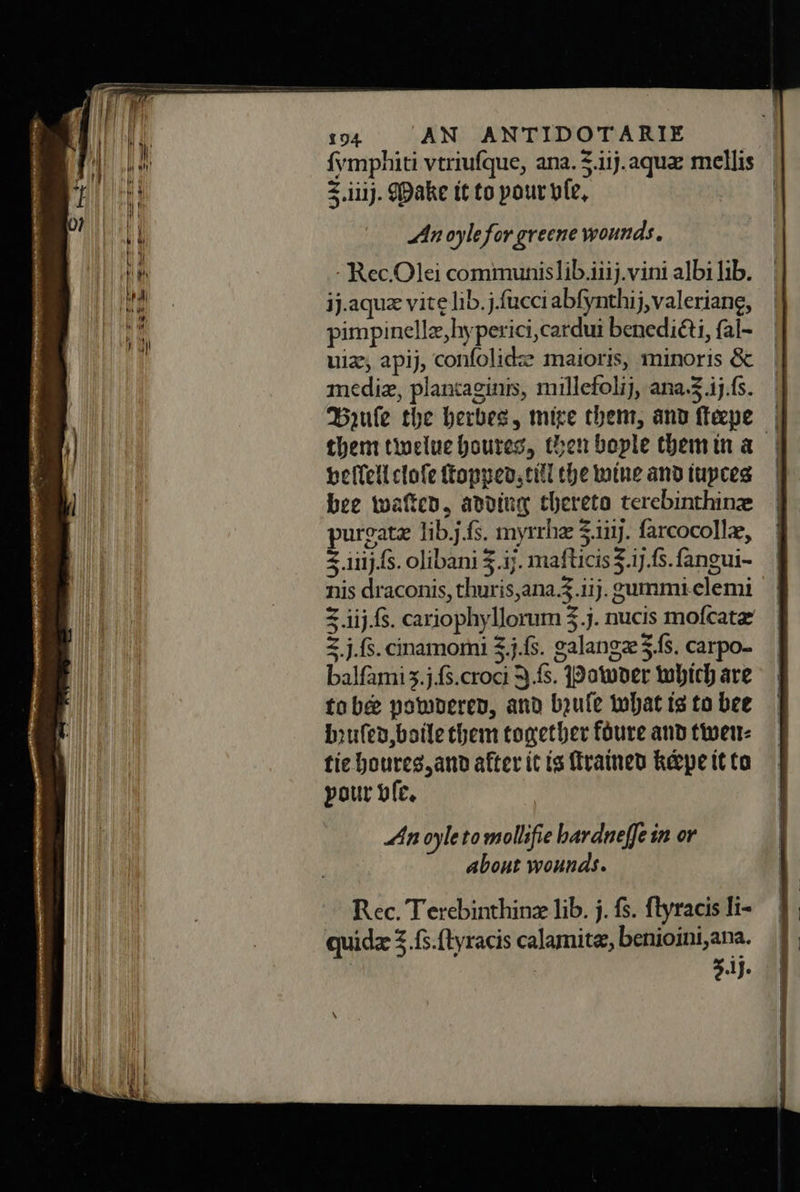 194 AN ANTIDOTARIE
ſymphiti vtriuſque, ana. ℥.iij. aquæ mellis
℥.iiij. Make it to your vſe,
An oyle for greene wounds.
Rec. Olei communis lib. iiij. vini albi lib.
ij. aquæ vite lib. j. ſucci abſynthij, valerianę,
pimpinellæ, hyperici, cardui benedicti, ſal-
uiæ, apij, conſolidæ maioris, minoris &
mediæ, plantaginis, millefolij, ana. ℥.ij.ſs.
Bruſe the herbes, mixe them, and ſteepe
them twelue houres, then boyle them in a
veſſell cloſe ſtopped, till the wine and iuyces
bee waſted, adding thereto terebinthinæ
purgatæ lib. j. ſs. myrrhæ ℥.iiij. ſarcocollæ,
℥.iiij.ſs. olibani ℥.ij. maſticis ℥.ij.ſs. ſangui-
nis draconis, thuris, ana. ℥.iij. gummi elemi
℥.iij.ſs. cariophyllorum ℥.j. nucis moſcatæ
℥.j.ſs. cinamomi ℥.j.ſs. galangæ ℥.ſs. carpo-
balſami ʒ.j.ſs. croci ℈.ſs. Powder which are
to be powdered, and bruſe what is to bee
bruſed, boile them together foure and twen-
tie houres, and after it is ſtrained keepe it to
your vſe.
An oyle to mollifie hardneſſe in or
about wounds.
Rec. Terebinthinæ lib. j. ſs. ſtyracis li-
quidæ ℥.ſs. ſtyracis calamitæ, benioini, ana.
ʒ.ij.